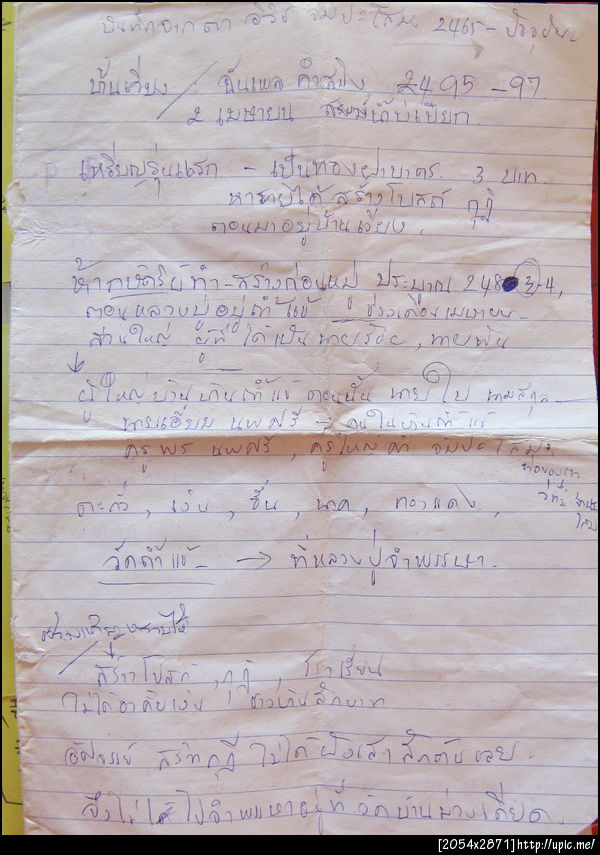 บันทึกจากตา 2465 - ปัจจุบัน
บ้านเวียง วันเพ็ญ 2495 - 97
2 เมษายน
เหรียญรุ่นแรก - เป็นทองฝาบาตร 3 บาท
หารายได้ สร้างโบสถ์ กุฏิ
ตอนมาอยู่บ้านเวียง.
ห้ากษัตริย์ ทำ-สร้างก่อนหมู่ ประมาณ 248 3-4,
ตอนหลวงปู่อยู่ถ้ำแข้ ช่วงเดือนเมษายน
ส่วนใหญ่ ผู้ที่ได้เป็นนายร้อย, นายพัน
ผู้ใหญ่บ้าน ถ้ำแข้ ตอนนั้น นายใบ นามสกุล
นายเอี่ยม นพศรี คนในบ้านถ้ำแข้
ครูพร นพศรี, ครูใหญ่คำ
พ่อของเรา
ตะกั่ว, เงิน, ชิน, นาค, ทองแดง,
วัดถ้ำแข้ → ที่หลวงปู่จำพรรษา.
สร้างโบสถ์, กุฏิ, โรงเรียน
ไม่ได้อาศัยเงิน ชาวบ้านสักบาท
อัศจรรย์ สร้างกุฏิ ไม่ได้ฝังเสาสักต้นเลย.
จึงไม่ได้ไปจำพรรษาอยู่ที่ วัดบ้านม่วงเดียด.
[2054x2871] http://upic.me/